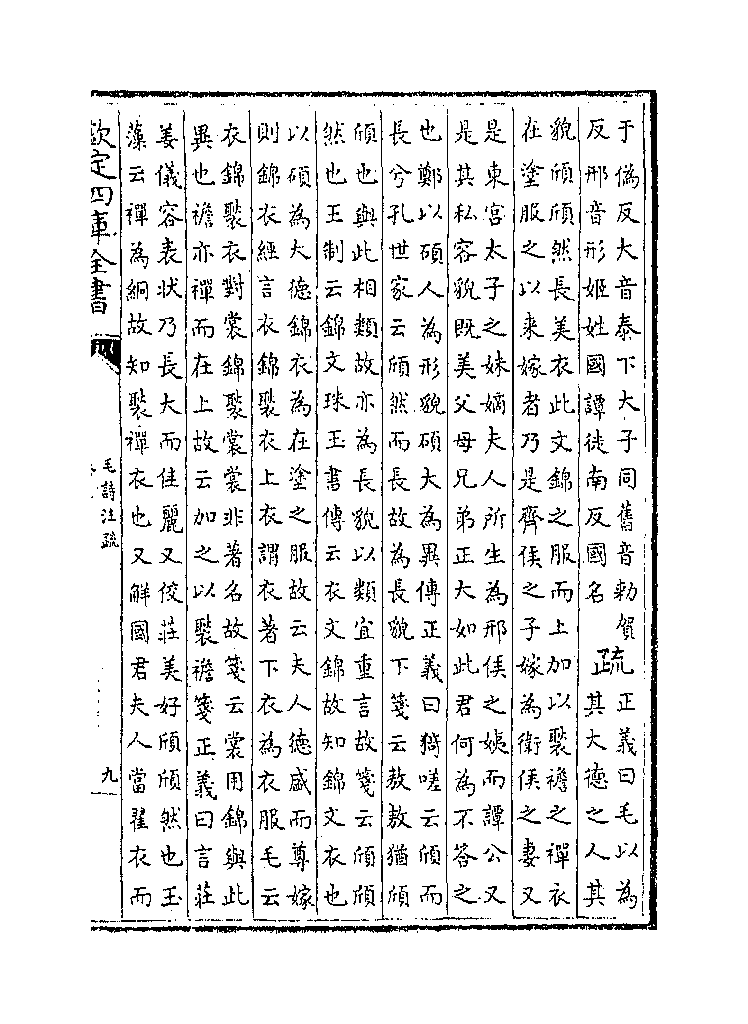 于偽反大音泰下大子同舊音勑賀
反邢音形姬姓國譚徒南反國名
疏
正義曰毛以為
其大德之人其
貌頎頎然長美衣此文錦之服而上加以褧襜之襌衣
在塗服之以來嫁者乃是齊侯之子嫁為衛侯之妻又
是東宮太子之妹嫡夫人所生為邢侯之姨而譚公又
是其私容貌既美父母兄弟正大如此君何為不答之
也鄭以碩人為形貌碩大為異傳正義曰猗嗟云頎而
長兮孔世家云頎然而長故為長貌下箋云敖敖猶頎
頎也與此相類故亦為長貌以類宜重言故箋云頎頎
然也王制云錦文珠玉書傳云衣文錦故知錦文衣也
以碩為大德錦衣為在塗之服故云夫人德盛而尊嫁
則錦衣經言衣錦褧衣上衣謂衣著下衣為衣服毛云
衣錦褧衣對裳錦褧裳裳非著名故箋云裳用錦與此
異也襜亦襌而在上故云加之以褧襜箋正義曰言莊
姜儀容表狀乃長大而佳麗又佼莊美好頎頎然也玉
藻云襌為絅故知褧襌衣也又解國君夫人當翟衣而
欽定四庫全書
毛詩注疏
九